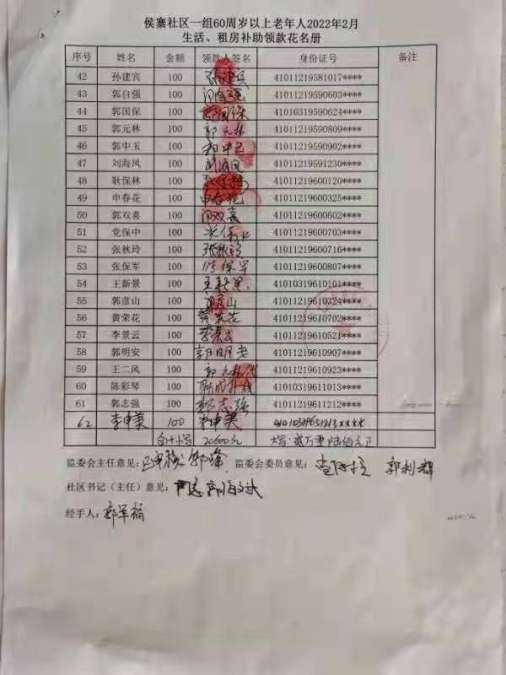 侯寨社区一组60周岁以上老年人2022年2月
生活、租房补助领款花名册
序号 姓名 金额 领款人签名 身份证号 备注
42 孙建宾 100 41011219581017****
43 郭自强 100 41011219590603****
44 郭国保 100 41010319590624****
45 郭元林 100 郭元林 41011219590809****
46 郭中玉 100 41011219590902****
47 刘海风 100 41011219591230****
48 耿保林 100 41011219600120****
49 申春花 100 41011219600325****
50 郭双喜 100 41011219600602****
51 党保中 100 41011219600703****
52 张秋玲 100 张秋玲 41011219600716****
53 张保军 100 张保军 41011219600807****
54 王新景 100 王新景 41010319610101****
55 郭彦山 100 41011219610324****
56 黄荣花 100 黄荣花 41011219610702****
57 李景云 100 李景云 41011219610521****
58 郭明安 100 郭明安 41011219610907****
59 王二凤 100 41011219610923****
60 陈彩琴 100 41010319611013****
61 郭志强 100 郭志强 41011219611212****
62 100
合计小写 20600元 大写:贰万零陆佰元正
监委会主任意见: 监委会委员意见: 郭利辉
社区书记(主任)意见:
经手人: